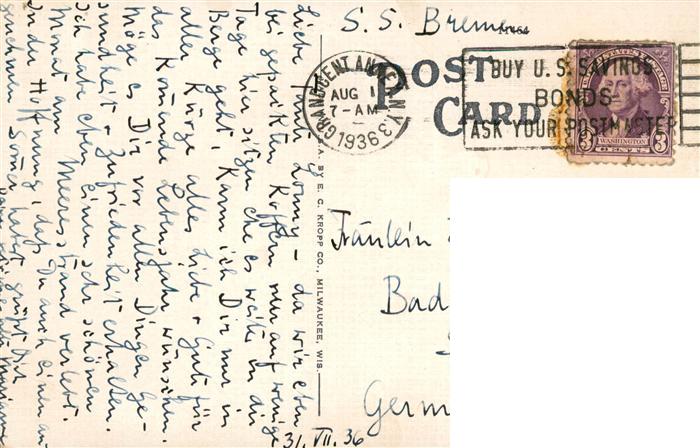 S. S. Bremen
11464
POST CARD
GRAND CENT. ANNEX, N.Y.
AUG 1
7-AM
1936
BUY U. S. SAVINGS
BONDS
ASK YOUR POSTMASTER
UNITED STATES POSTAGE
3 WASHINGTON 3
CENTS
BY E. C. KROPP CO., MILWAUKEE, WIS.
Fräulein
Bad
Germ
31. VII. 36
Liebe Lonny – da wir eben
bei gepackten Koffern nur auf wenige
Tage hier sitzen ehe es weiter in die
Berge geht, kann ich Dir nur in
aller Kürze alles Liebe + Gute für
das Kommende Lebensjahr wünschen.
Möge es Dir vor allen Dingen Ge-
sundheit + Zufriedenheit erhalten.
Ich habe eben einen sehr schönen
Monat am Meeresstrand verlebt.
In der Hoffnung, dass Du auch einen an-
genehmen Sommer habest grüsst Dich